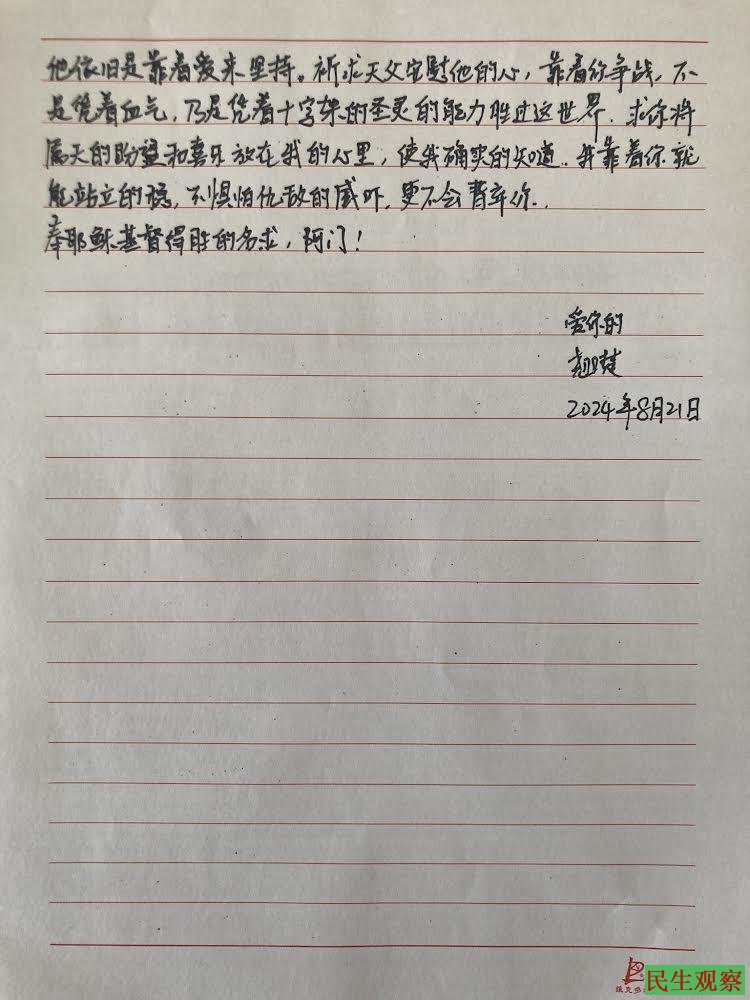 他依旧是靠着爱来坚持。祈求天父安慰他的心，靠着你争战，不
是凭着血气，乃是凭着十字架的圣灵的能力胜过这世界．求你将
属天的盼望和喜乐放在我的心里，使我确实的知道．我靠着你就
能站立的稳，不惧怕仇敌的威吓，更不会背弃你．
奉耶稣基督得胜的名求，阿门！
爱你的
2024年8月21日
民生观察